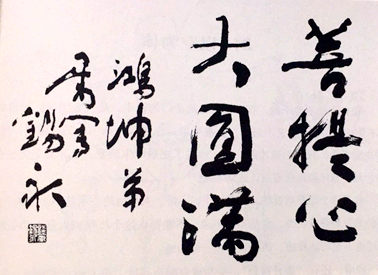 菩提心
大圓滿
鴻坤弟
屬
錫永